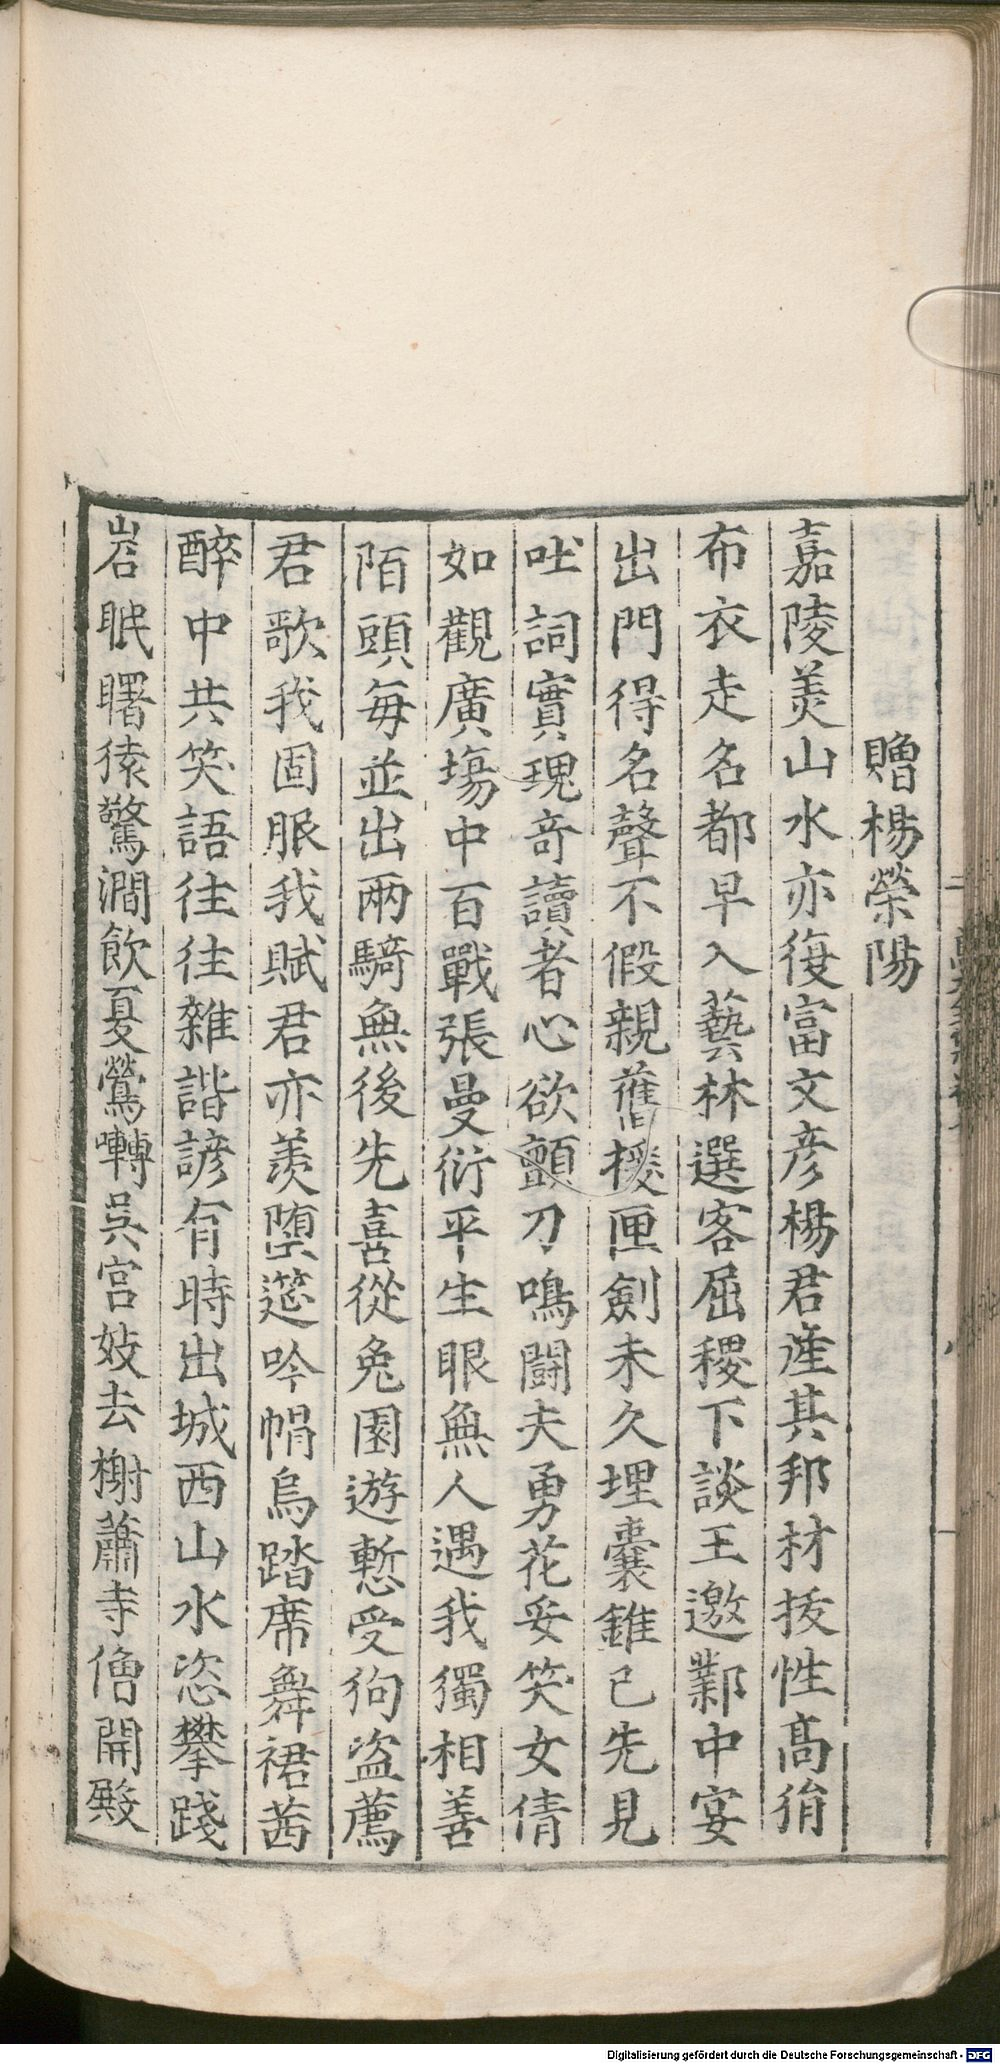 贈楊滎陽
嘉陵美山水亦復富文彦楊君産其邦材拔性髙狷
布衣走名都早入藝林選客屈稷下談王邀鄴中宴
出門得名聲不假親舊援匣劍未久埋囊錐已先見
吐詞實瑰奇讀者心欲顫刀鳴鬪夫勇花妥笑女倩
如觀廣塲中百戰張曼衍平生眼無人遇我獨相善
陌頭每並出兩騎無後先喜從兔園遊慙受狗盗薦
君歌我固服我賦君亦羨墮筵吟帽烏踏席舞裙茜
醉中共笑語往往雜諧諺有時出城西山水恣攀踐
岩眠曙猿驚澗飲夏鶯囀吳宫妓去榭蕭寺僧開殿
Digitalisierung gefördert durch die Deutsche Forschungsgemeinschaft - DFG